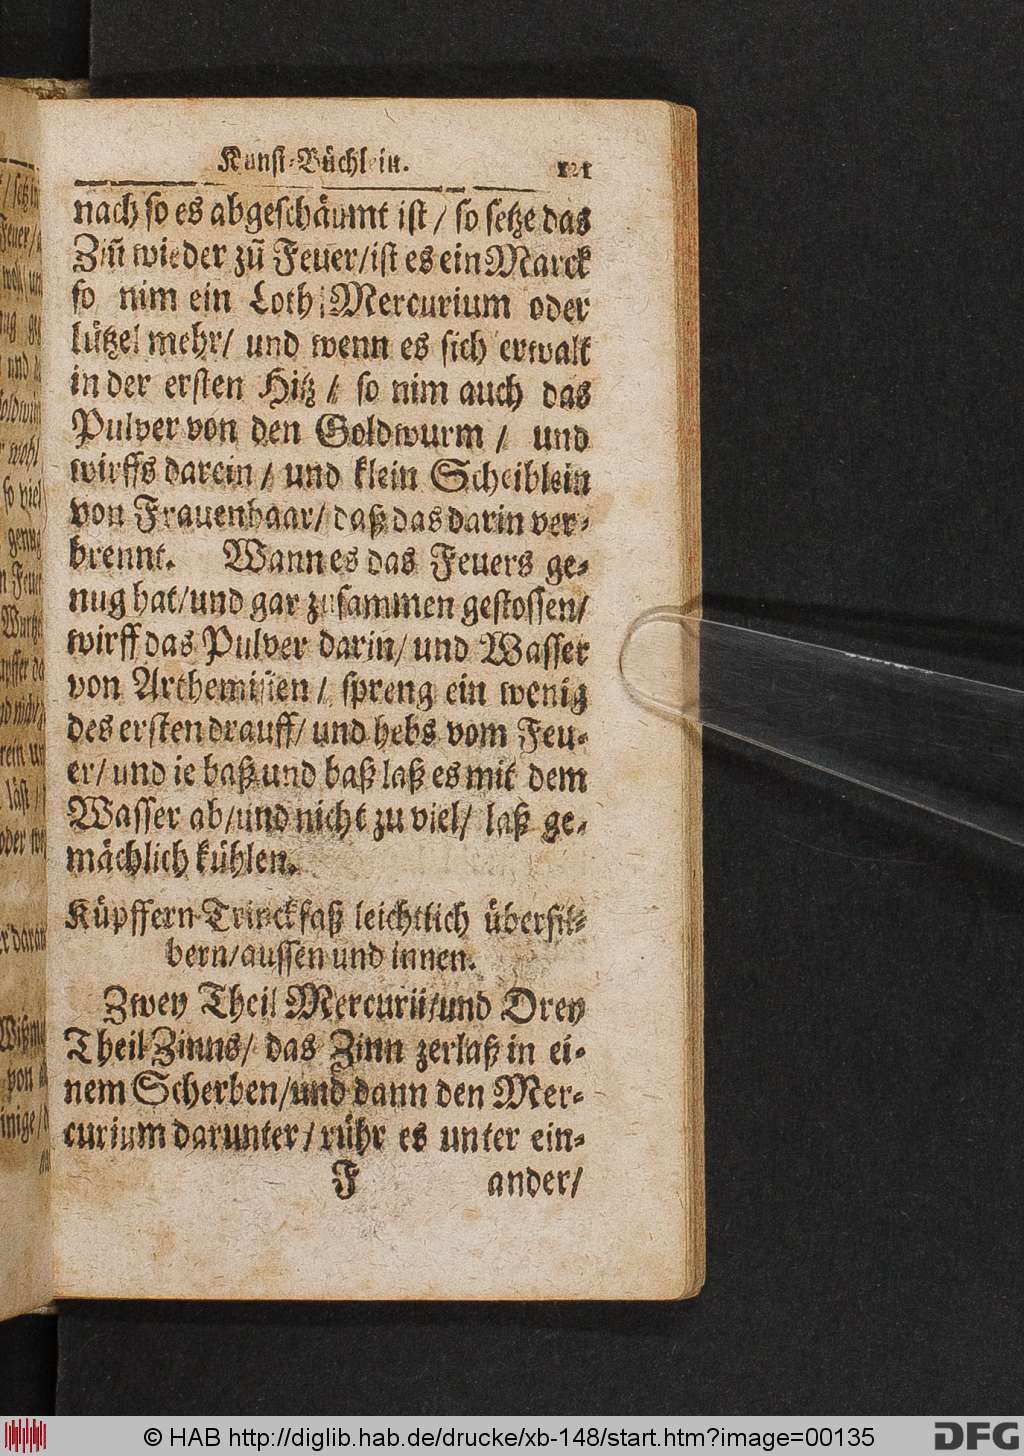 Kunst-Büchlein. 121
nach so es abgeschäumt ist / so setze das
Ziñ wieder zũ Feuer/ist es ein Marck
so nim ein Loth Mercurium oder
lützel mehr/ und wenn es sich erwalt
in der ersten Hitz / so nim auch das
Pulver von den Goldwurm / und
wirffs darein / und klein Scheiblein
von Frauenhaar/ daß das darin ver-
brennt. Wann es das Feuers ge-
nug hat/und gar zusammen gestossen/
wirff das Pulver darin/ und Wasser
von Arthemisien / spreng ein wenig
des ersten drauff/ und hebs vom Feu-
er/ und ie baß und baß laß es mit dem
Wasser ab/und nicht zu viel/ laß ge-
mächlich kühlen.
Küpffern Trinckfaß leichtlich übersil-
bern/aussen und innen.
Zwey Theil Mercurii/und Drey
Theil Zinns/ das Zinn zerlaß in ei-
nem Scherben/und dann den Mer-
curium darunter / rühr es unter ein-
F ander/
© HAB http://diglib.hab.de/drucke/xb-148/start.htm?image=00135
DFG